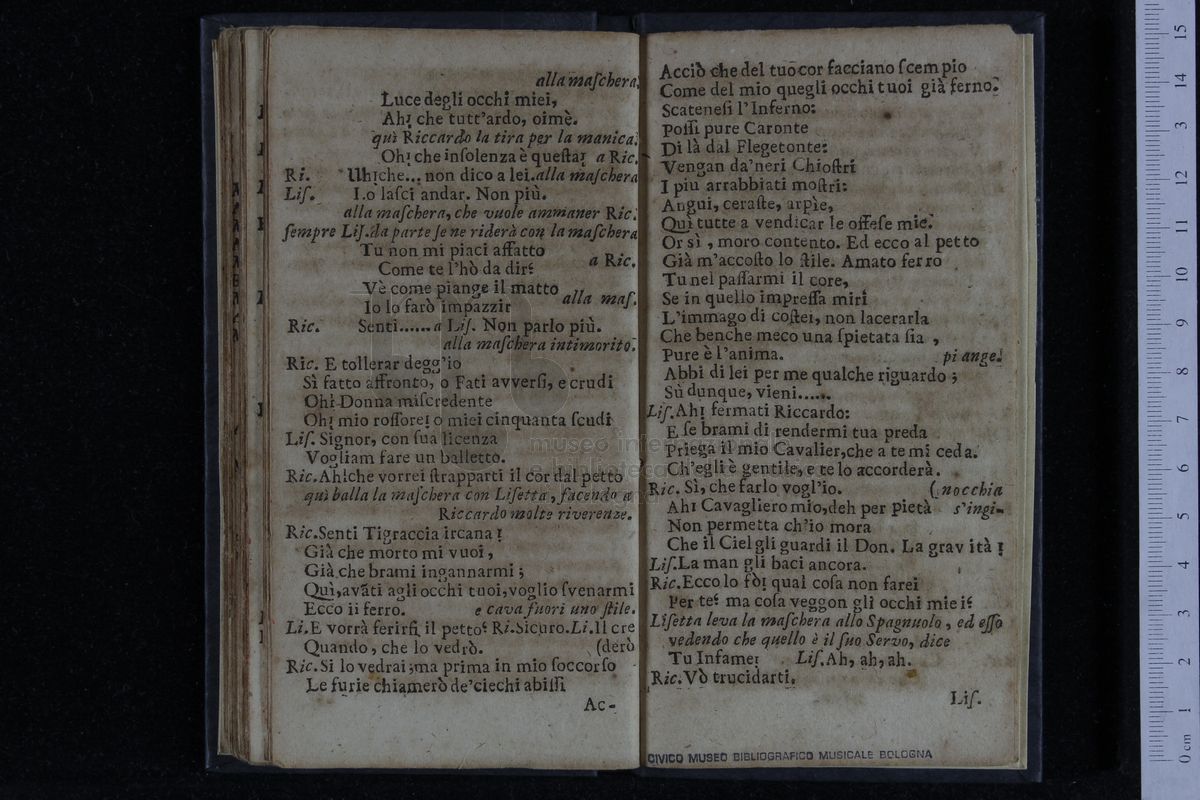 alla maſchera.
Luce degli occhi miei,
Ah! che tutt'ardo, oimè.
quì Riccardo la tira per la manica.
Oh! che inſolenza è queſta! a Ric.
Ri. Uh!che... non dico a lei. alla maſchera
Liſ. Lo laſci andar. Non più.
alla maſchera, che vuole ammaner Ric.
ſempre Liſ. da parte ſe ne riderà con la maſchera
Tu non mi piaci affatto
Come te l'hò da dir? a Ric.
Vè come piange il matto
Io lo farò impazzir alla maſ.
Ric. Senti...... a Liſ. Non parlo più.
alla maſchera intimorito.
Ric. E tollerar degg'io
Sì fatto affronto, o Fati avverſi, e crudi
Oh! Donna miſcredente
Oh! mio roſſore! o miei cinquanta ſcudi
Liſ. Signor, con ſua licenza
Vogliam fare un balletto.
Ric. Ah!che vorrei ſtrapparti il cor dal petto
quì balla la maſchera con Liſetta, facendo a
Riccardo molte riverenze.
Ric. Senti Tigraccia ircana!
Già che morto mi vuoi,
Già che brami ingannarmi;
Quì, avāti agli occhi tuoi, voglio ſvenarmi
Ecco ii ferro. e cava fuori uno ſtile.
Li. E vorrà ferirſi il petto? Ri. Sicuro. Li. Il cre
Quando, che lo vedrò. (derò
Ric. Si lo vedrai; ma prima in mio ſoccorſo
Le furie chiamerò de'ciechi abiſſi
Ac-
Acciò che del tuo cor facciano ſcempio
Come del mio quegli occhi tuoi già ferno.
Scateneſi l'Inferno:
Poſſi pure Caronte
Di là dal Flegetonte:
Vengan da'neri Chioſtri
I piu arrabbiati moſtri:
Angui, ceraſte, arpìe,
Quì tutte a vendicar le offeſe mie.
Or sì, moro contento. Ed ecco al petto
Già m'accoſto lo ſtile. Amato ferro
Tu nel paſſarmi il core,
Se in quello impreſſa miri
L'immago di coſtei, non lacerarla
Che benche meco una ſpietata ſia,
Pure è l'anima. piange.
Abbi di lei per me qualche riguardo;
Sù dunque, vieni......
Liſ. Ah! fermati Riccardo:
E ſe brami di rendermi tua preda
Priega il mio Cavalier, che a te mi ceda.
Ch'egli è gentile, e te lo accorderà.
Ric. Sì, che farlo vogl'io. (nocchia
Ah! Cavagliero mio, deh per pietà s'ingi-
Non permetta ch'io mora
Che il Ciel gli guardi il Don. La gravità!
Liſ. La man gli baci ancora.
Ric. Ecco lo fò! qual coſa non farei
Per te? ma coſa veggon gli occhi miei?
Liſetta leva la maſchera allo Spagnuolo, ed eſſo
vedendo che quello è il ſuo Servo, dice
Tu Infame! Liſ. Ah, ah, ah.
Ric. Vò trucidarti.
Liſ.
CIVICO MUSEO BIBLIOGRAFICO MUSICALE BOLOGNA
0 cm 1 2 3 4 5 6 7 8 9 10 11 12 13 14 15